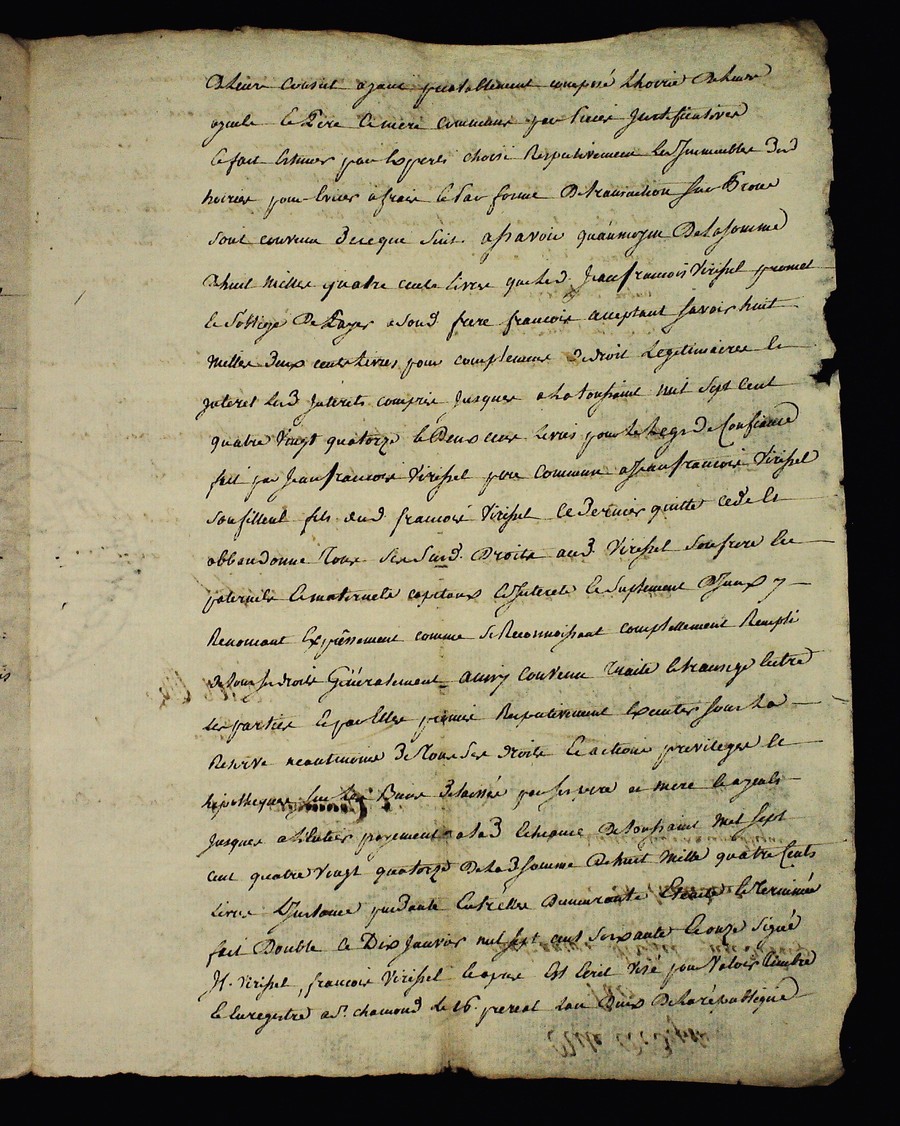 De leur Conseil ayant prealablement composé L'hoirie De leur
ayeule Le Pere Et mere Communs par pieces Justificatives
Et fait Estimer par Experts choisi Respectivement Les Immeubles Dud
hoiries pour Eviter a frais Et Par forme De transaction Sur Proces
Sont convenu De ce que Suit. assavoir qu'au moyen De La Somme
De huit Milles quatre cents Livres que Led. Jean francois Virissel promet
Et S'oblige De Payer a Son d. frere francois acceptant Savoir huit
Milles Deux cents Livres pour complement De droit Legitimaires Et
Interet Lesd Interets compris Jusques a La toussaint Mil Sept Cent
quatre Vingt quatorze Et Deux cens Livres pour Le Legs De Confiance
fait par Jean francois Virissel pere Commun a Jean francois Virissel
Son fillieul fils dud francois Virissel Ce Dernier quitte cede Et
abbandonne Tous Ses Susd. Droits aud. Virissel Son frere
paternels Et maternels capitaux Et Interets Et Suplement D'yceux y
Renoncant Expressement comme Se Reconnoissant complettement Rempli
De tous Ses droits Généralement ainsy Convenu Traité Et transigé Entre
Les parties Et par Elles promis Respectivement Executer Sous La
Reserve neantmoins De Tous Ses droits Et actions privileges Et
hipotheques Sur Les Biens Delaissés par Ses pere et mere Et ayeule
Jusques a L'Entier payement a Lad Echeance De toussaint Mil Sept
cent quatre Vingt quatorze De Lad Somme De huit Mille quatre Cents
Livres L'Instance pendante Entr'elles Demeurante Eteinte Et Terminée
fait Double Ce Dix Janvier mil Sept cent Soixante Et onze Signé
Jf. Virissel, francois Virissel Et apres Est Ecrit Visé pour Valoir timbre
Et Enregistré a St. chamond Le 16. prereal Lan Deux De La république